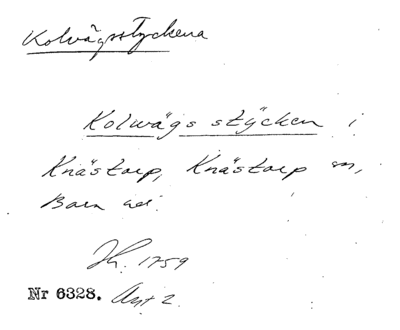 Kolvägsstyckena
Kolwägs stÿcken i
Knästorp, Knästorp sn,
Bara hd.
Jh. 1759
Nr 6328. Akt 2.